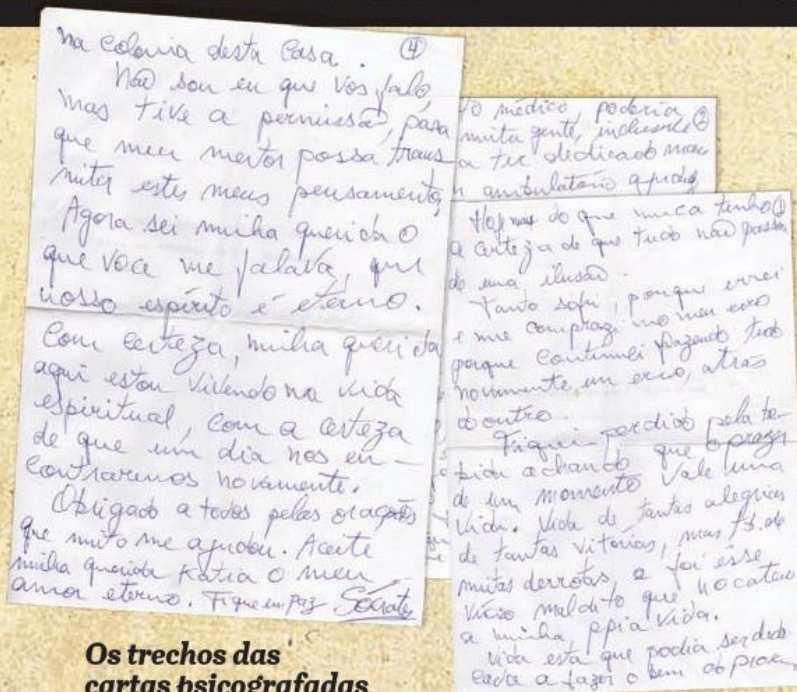 na colonia desta Casa. ④
Não sou eu que vos falo,
mas tive a permissão, para
que meu mentor possa trans
mitir estes meus pensamentos
Agora sei minha querida o
que voce me falava, que
nosso espírito é eterno.
Com certeza, minha querida
aqui estou vivendo na vida
espiritual, com a certeza
de que um dia nos en-
contraremos novamente.
Obrigado a todos pelas orações
que muito me ajudou. Aceite
minha querida Katia o meu
amor eterno. Fique em paz Sócrates
médico, poderia
muita gente, inclusive ②
a ter dedicado mais
ambulatório
Hoje mais do que nunca tenho ①
a certeza de que tudo não passa
de uma ilusão.
Tanto sofri, porque errei
e me comprazi no meu erro
porque continuei fazendo tudo
novamente um erro, atrás
do outro.
Fiquei perdido pela be-
bida achando que o prazer
de um momento vale uma
vida. Vida de tantas alegrias
de tantas vitórias, mas tb. de
muitas derrotas, e foi esse
vício maldito que nocateou
a minha ppia vida.
Vida esta que podia ser dedi
cada a fazer o bem ao proxi
Os trechos das
cartas psicografadas